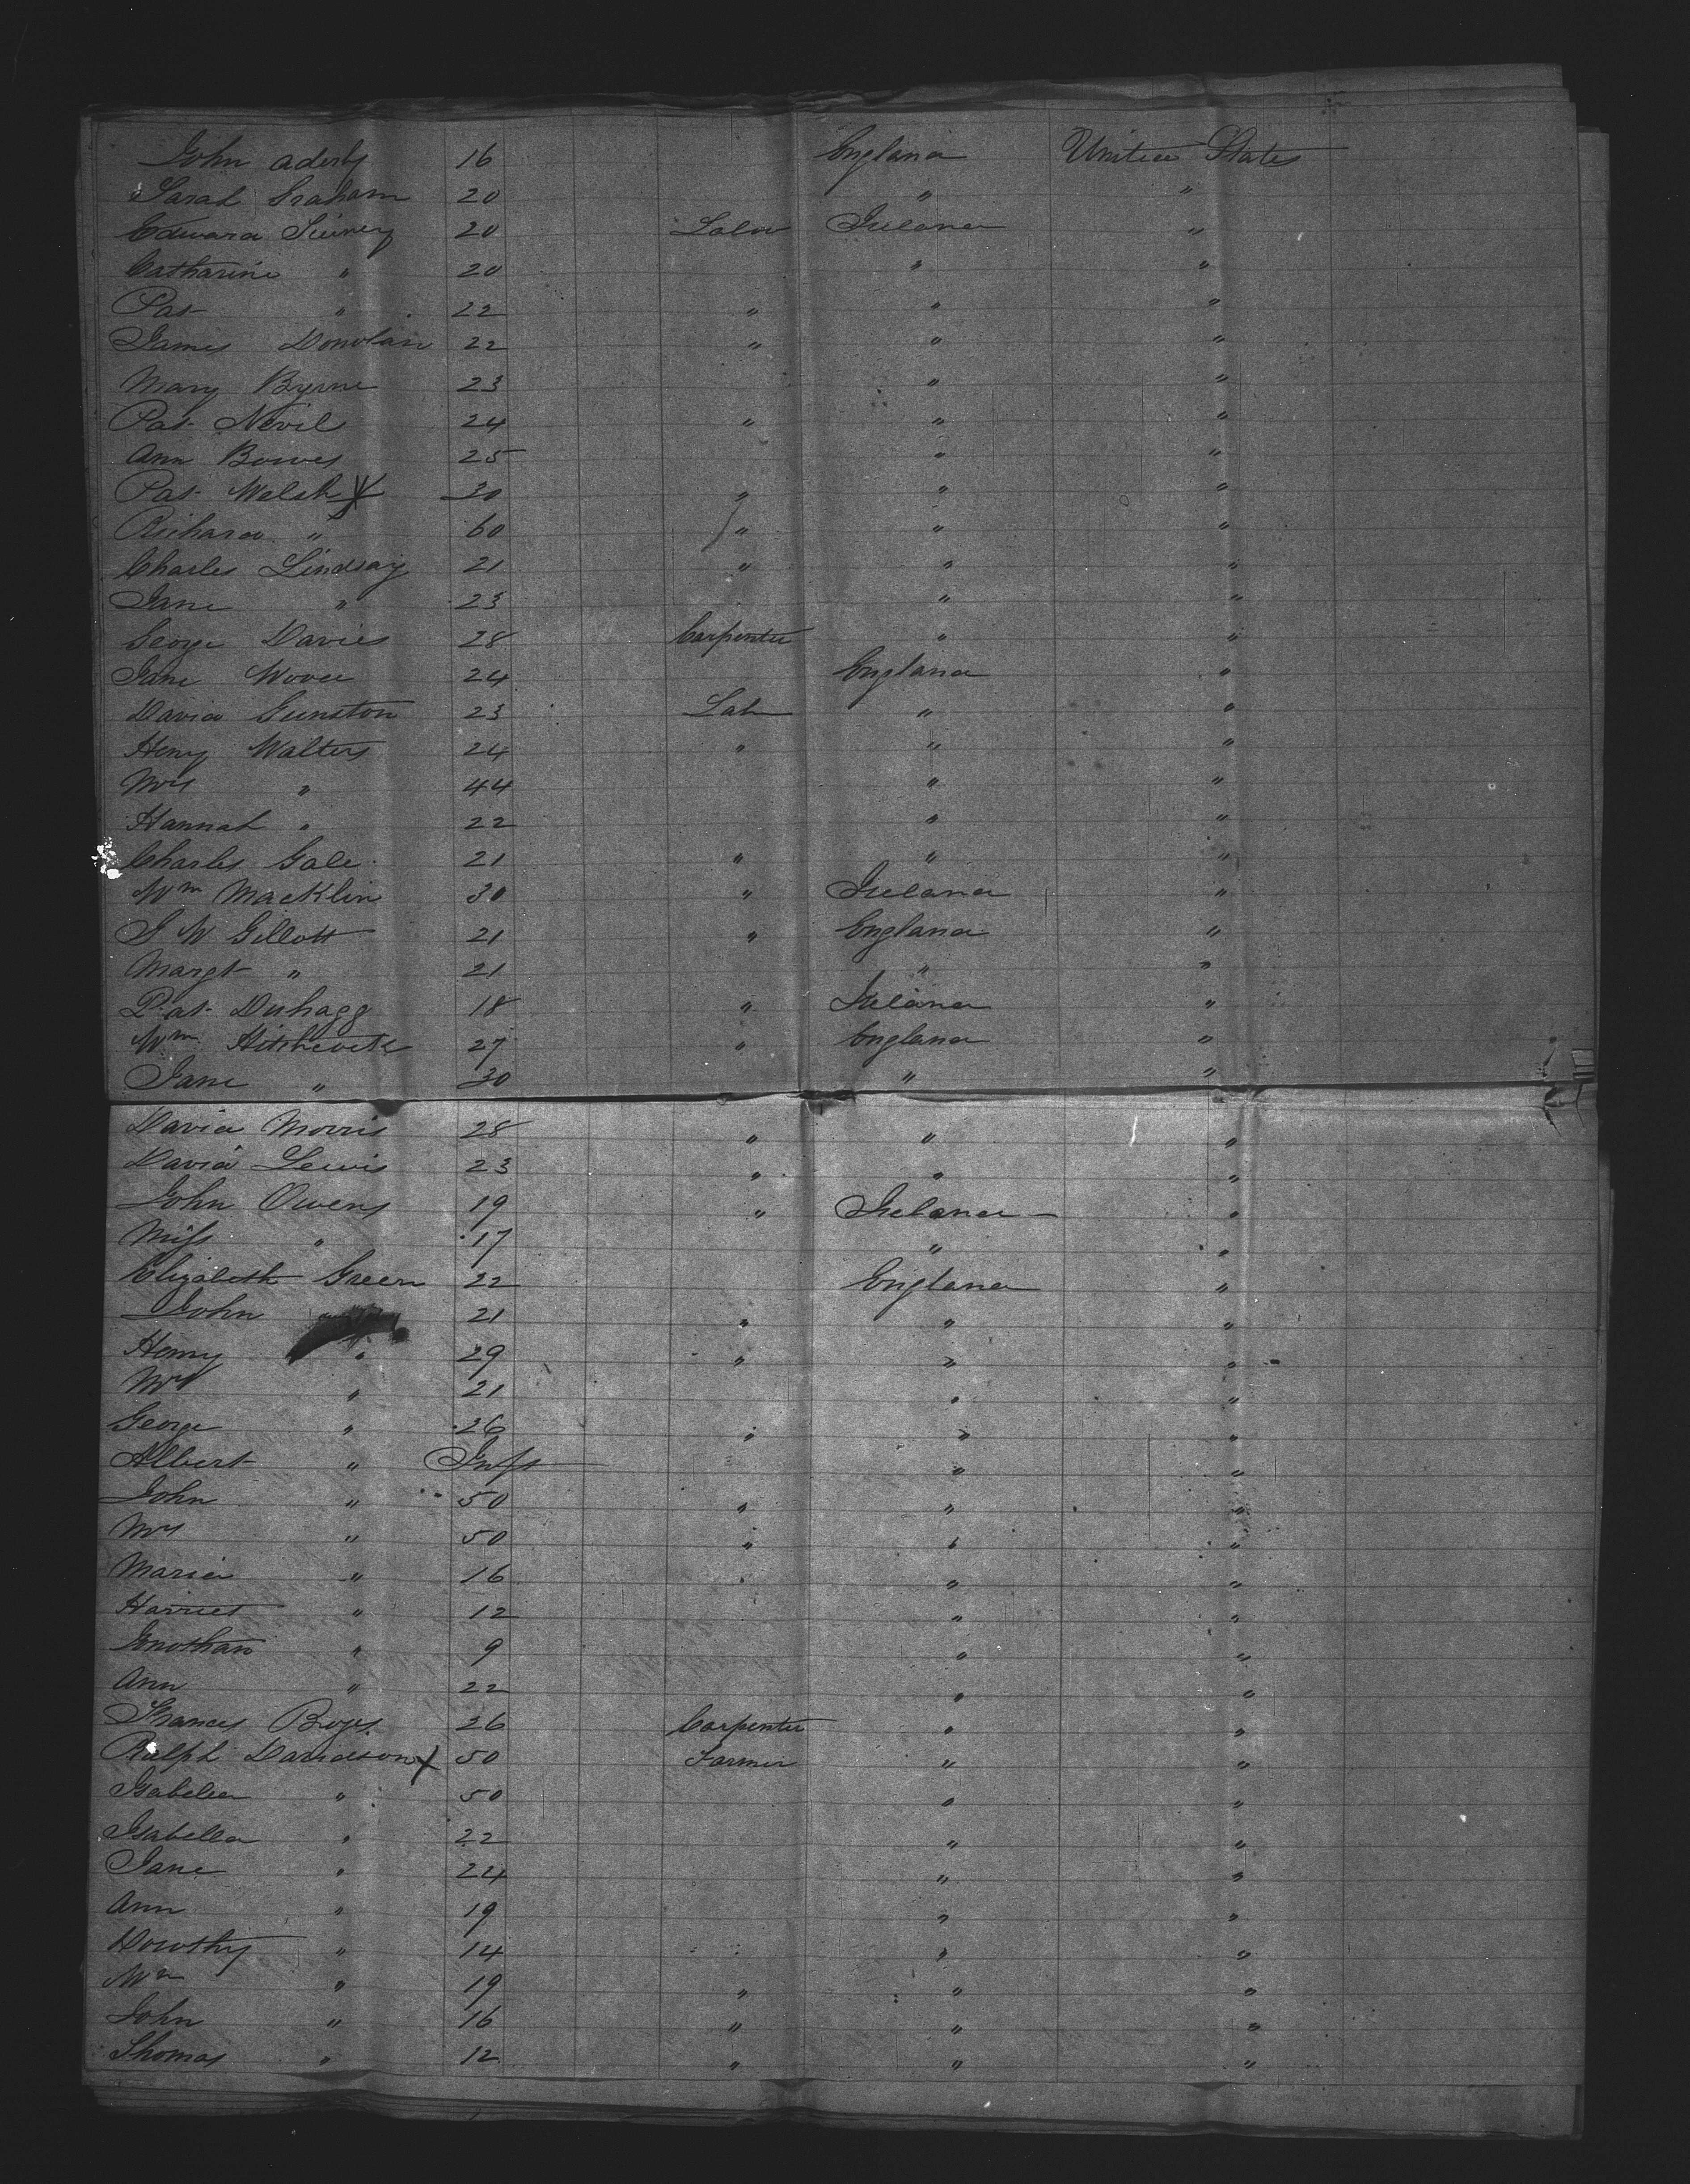 John Aderly 16 England United States
Sarah Graham 20 " "
Edward 20 Labor Ireland "
Catharine " 20 " "
Pat " 22 " " "
James Donolan 22 " " "
Mary Byrne 23 " "
Pat Nevil 24 " " "
Ann Bowes 25 " "
Pat Welsh X 30 " " "
Richard " 60 " " "
Charles Lindsay 21 " " "
Jane " 23 " "
George Davies 28 Carpenter " "
Jane 24 England "
David Gunston 23 Lab " "
Henry Walters 24 " " "
Mrs " 44 " "
Hannah " 22 " "
Charles Gale 21 " " "
Wm Macklin 30 " Ireland "
G W Gillott 21 " England "
Margt " 21 " "
Pat Duhagg 18 " Ireland "
Wm Hitchcock 27 " England "
Jane " 30 " "
David Morris 28 " " "
David Lewis 23 " " "
John Owens 19 " Ireland "
Miss " 17 " "
Elizabeth Green 22 England "
John " 21 " " "
Henry " 29 " " "
Mrs " 21 " "
George " 26 " " "
Albert " Inft " "
John " 50 " " "
Mrs " 50 " " "
Maria " 16 " "
Harriet " 12 " "
Jonathan " 9 " "
Ann " 22 " "
Frances Boyes 26 Carpenter " "
Ralph Davidson X 50 Farmer " "
Isabella " 50 " "
Isabella " 22 " "
Jane " 24 " "
Ann " 19 " "
Dorothy " 14 " "
Wm " 19 " " "
John " 16 " " "
Thomas " 12 " " "